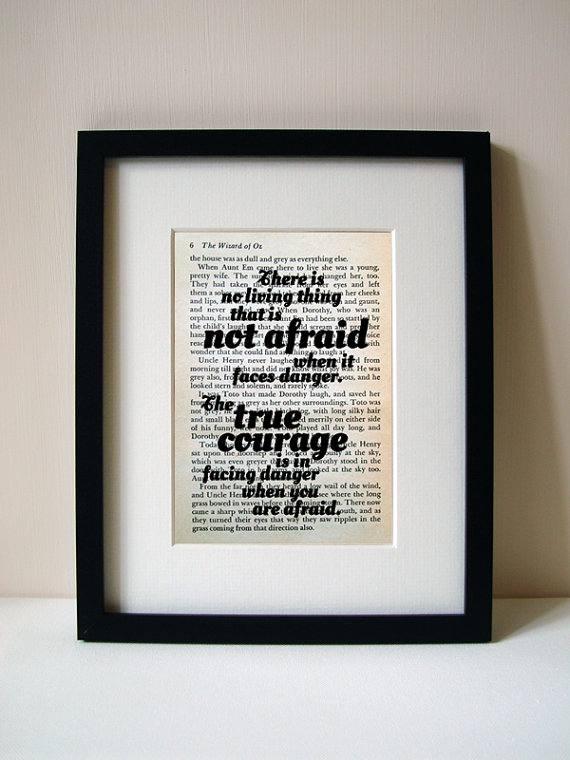 6 The Wizard of Oz
There is
no living thing
that is
not afraid
when it
faces danger.
The
true
courage
is in
facing danger
when you
are afraid.
the house was as dull and grey as everything else.
When Aunt Em came there to live she was a young,
pretty wife. The sun changed her, too.
They had taken the from her eyes and left
them a from her cheeks
and lips, and gaunt,
and never Dorothy, who was an
orphan, first had been so startled by
the child's laugh
wonder that she could find anything to laugh
Uncle Henry never laughed. from
morning till night and did not know what joy was. He was
grey also, from and he
looked stern and solemn, and rarely spoke.
Toto that made Dorothy laugh, and saved her
from as grey as her other surroundings. Toto was
not grey; dog, with long silky hair
and small black merrily on either side
of his funny, played all day long, and
Dorothy
Today Uncle Henry
sat upon the doorstep and looked anxiously at the sky,
which was even greyer than Dorothy stood in the
door with looked at the sky too.
Aunt
From the far a low wail of the wind,
and Uncle Henry see where the long
grass bowed in waves before There now
came a sharp and as
they turned their eyes that way they saw ripples in the
grass coming from that direction also.